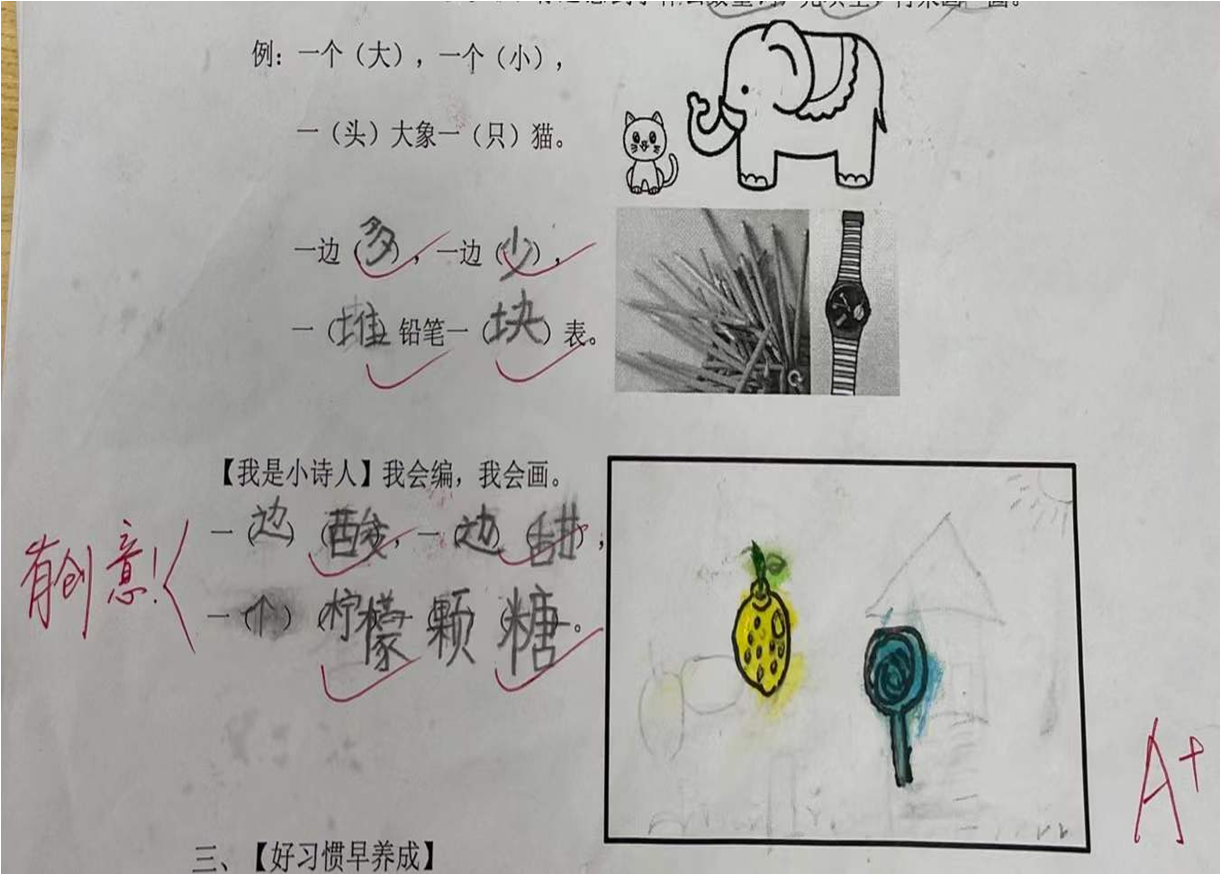 例：一个（大），一个（小），
一（头）大象一（只）猫。
一边（多），一边（少），
一（堆）铅笔一（块）表。
【我是小诗人】我会编，我会画。
一（边）（酸），一（边）（甜），
一（个）（柠檬）一（颗）（糖）。
有创意！
A+
三、【好习惯早养成】